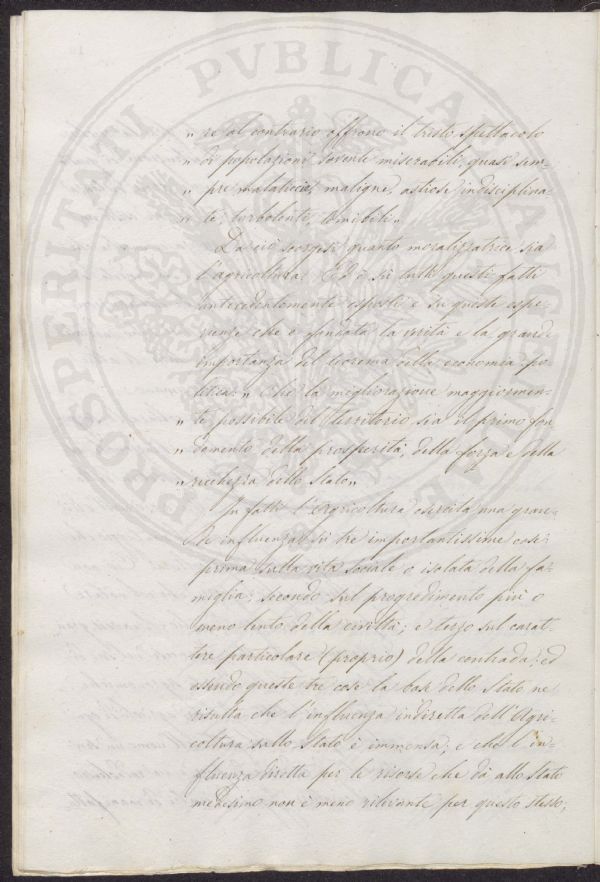 PROSPERITATI PVBLICAE AVGENDAE
„ re al contrario offrono il tristo spettacolo
„ di popolazioni sovente miserabili, quasi sem-
„ pre malaticcie, maligne, astiose, indisciplina-
„ te, turbolente, temibili „
Da ciò scorgesi quanto moralizzatrice sia
l'agricoltura. Ed è su tutti questi fatti
antecedentemente esposti e su queste espe-
rienze che è fondata la verità e la grande
importanza del teorema della economia po-
litica: „ Che la migliorazione maggiormen-
„ te possibile del territorio sia il primo fon
„ damento della prosperità, della forza e della
„ ricchezza dello Stato „
In fatti l'Agricoltura esercita una gran-
de influenza su tre importantissime cose:
prima sulla vita sociale o isolata della fa-
miglia; secondo sul progredimento più o
meno lento della civiltà; e terzo sul carat-
tere particolare (proprio) della contrada: ed
essendo queste tre cose la base dello Stato ne
risulta che l'influenza indiretta dell'Agri-
coltura sullo Stato è immensa; e che l'in-
fluenza diretta per le risorse che dà allo Stato
medesimo non è meno rilevante per questo stesso;